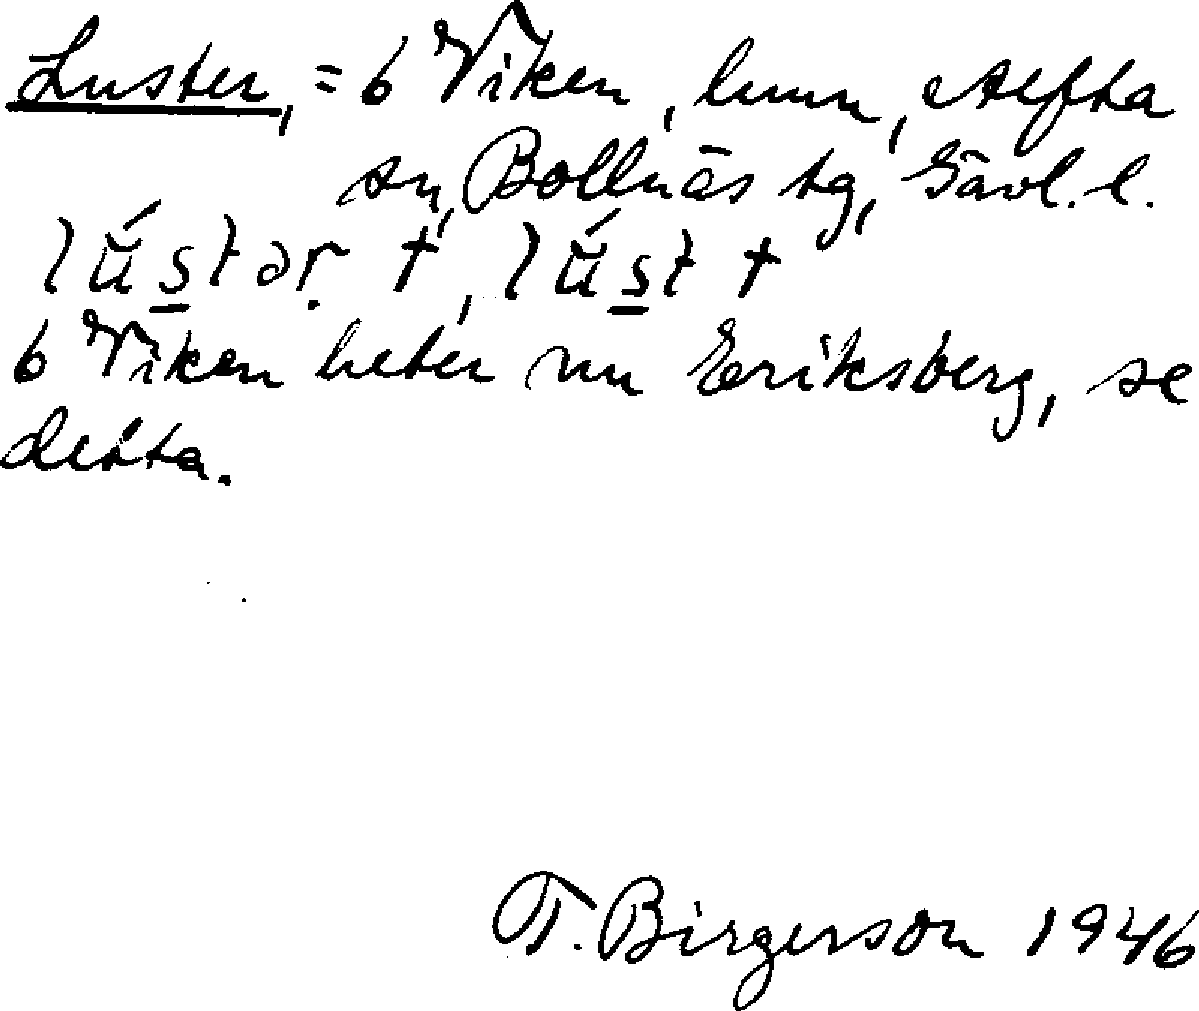 Luster, = 6 Viken, hmn, Alfta
sn, Bollnäs tg, Gävl. l.
lús̲tər. †, lús̲t †
6 Viken heter nu Eriksberg, se
detta.
T. Birgerson 1946